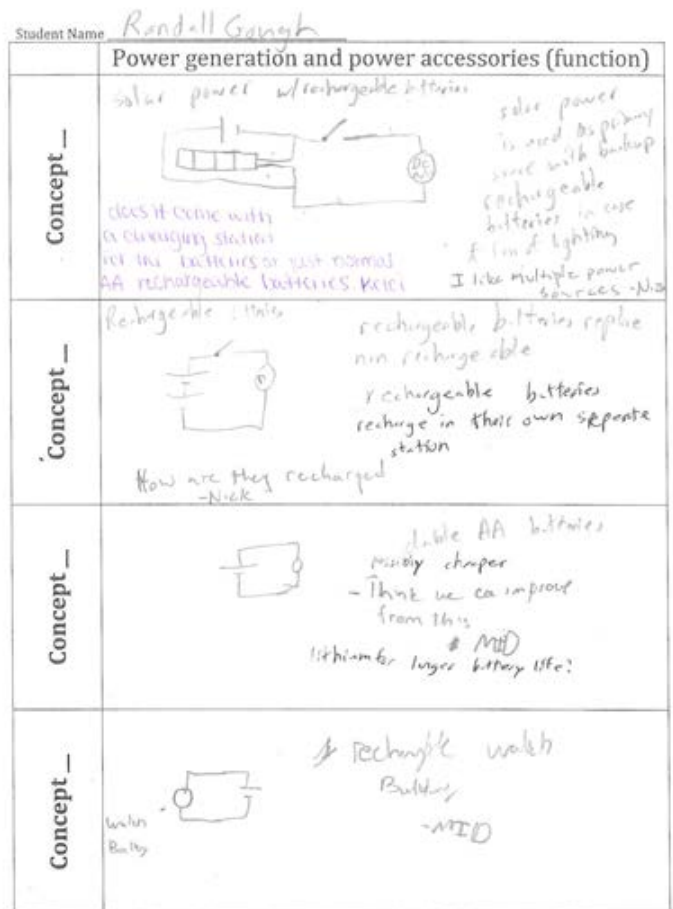 Student Name Randall Gough
Power generation and power accessories (function)
Concept_
solar power w/rechargeable batteries
DC
solar power
is used as primary
source with backup
rechargeable
batteries in case
of lighting
does it come with
a charging station
for the batteries or just normal
AA rechargeable batteries
I like multiple power
sources -Nick
Concept_
Rechargeable
rechargeable batteries replace
non rechargeable
rechargeable batteries
recharge in their own
station
How are they recharged
-Nick
Concept_
AA batteries
cheaper
- Think we ca improve
from this
MID
lithium for longer battery life?
Concept_
watch
-MID